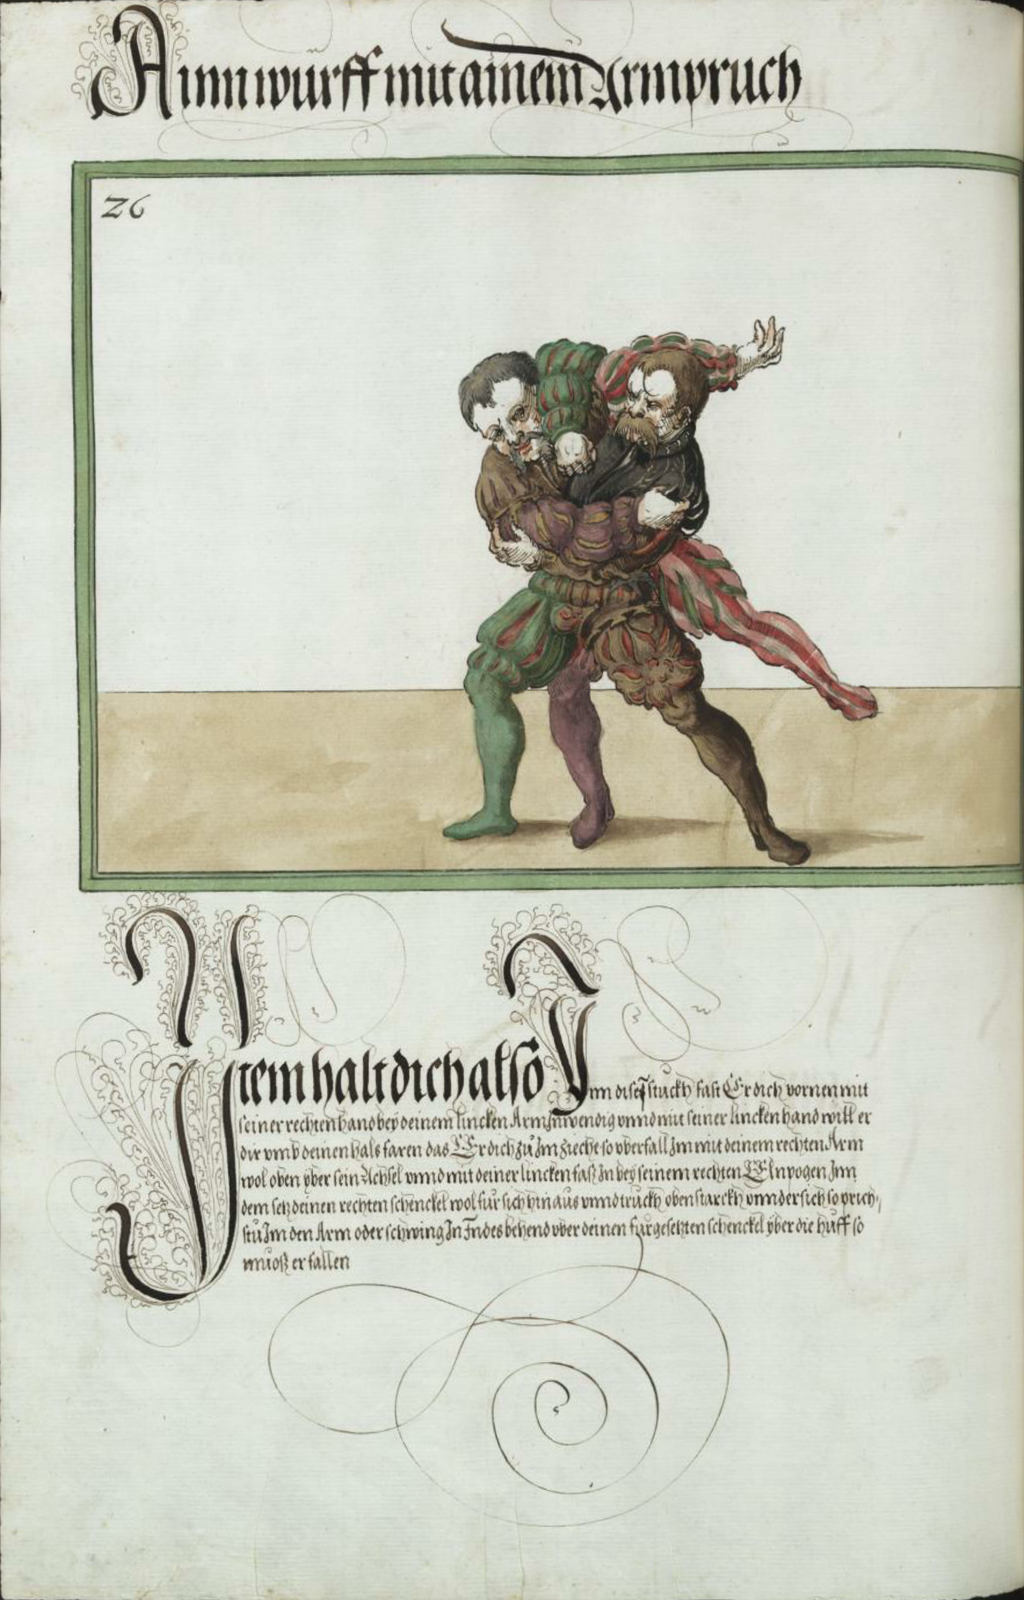 Ainn wurff mit ainem Armpruch
26
Ytem halt dich also Inn disem stuckh fast Er dich vornen mit
seiner rechten hand bey deinem lincken Arm Inwendig vnnd mit seiner lincken hand will er
dir vmb deinen hals faren das Er dich zů Im zieche so vberfall Im mit deinem rechten Arm
wol oben yber sein Achsel vnnd mit deiner lincken faß In bey seinem rechten Elnpogen Inn
dem setz deinen rechten schenckel wol für sich hinaus vnnd truckh oben starckh vnndersich so prich
stu Im den Arm oder schwing In Indes behend vber deinen fürgesetzten schenckel yber die huff so
muoß er fallen